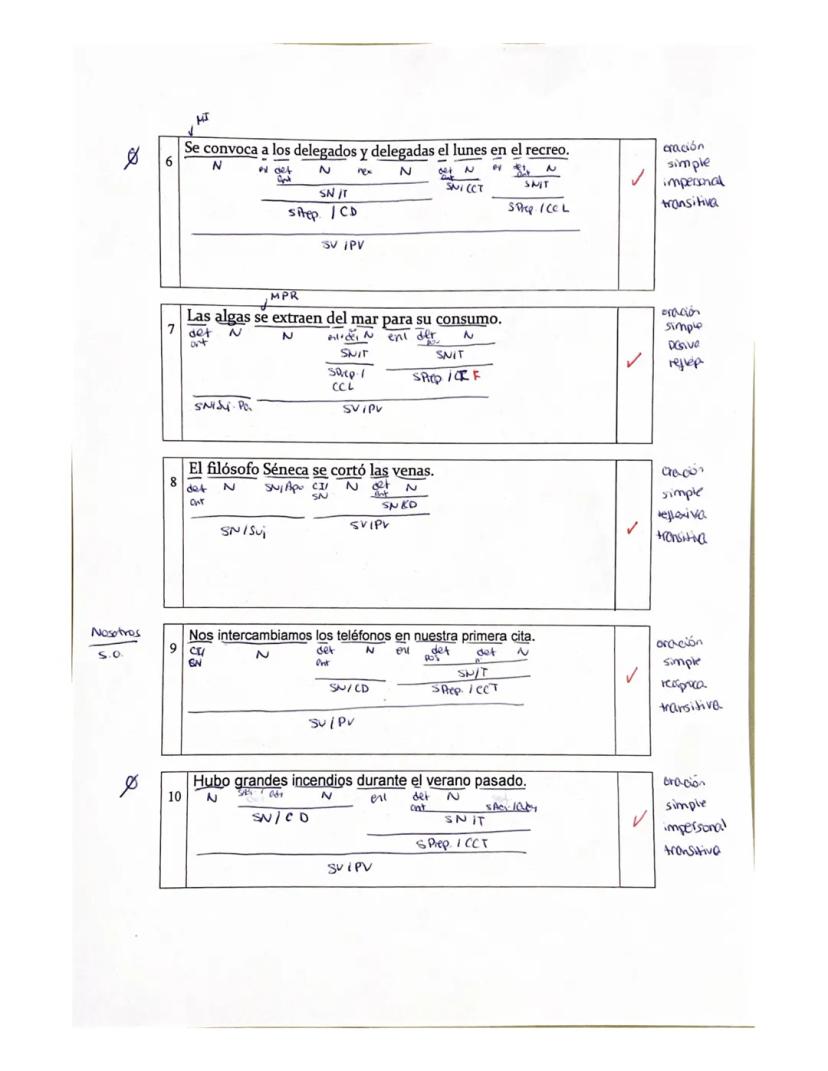 MI
Ø 6 Se convoca a los delegados y delegadas el lunes en el recreo. oración
N enl det N nex N det N enl det N simple
art art art impersonal
SN/T SN/CCT SN/T transitiva
SPrep. / CD SPrep / CCL
SV / PV
MPR
7 Las algas se extraen del mar para su consumo. oración
det N N enl+det N enl det N simple
art pos pasiva
SN/T SN/T refleja
SPrep. / SPrep / CC F
CCL
SN/Suj. Pa. SV/PV
8 El filósofo Séneca se cortó las venas. oración
det N SN/Apo CI/ N det N simple
art SN art reflexiva
SN/CD transitiva
SN/Suj SV/PV
Nosotros
S.O.
9 Nos intercambiamos los teléfonos en nuestra primera cita. oración
CI/ N det N enl det det N simple
SN art pos n recíproca
SN/T transitiva
SN/CD SPrep. / CCT
SV/PV
Ø 10 Hubo grandes incendios durante el verano pasado. oración
N N enl det N simple
art SAdj/Ady impersonal
SN/CD SN/T transitiva
SPrep. / CCT
SV/PV